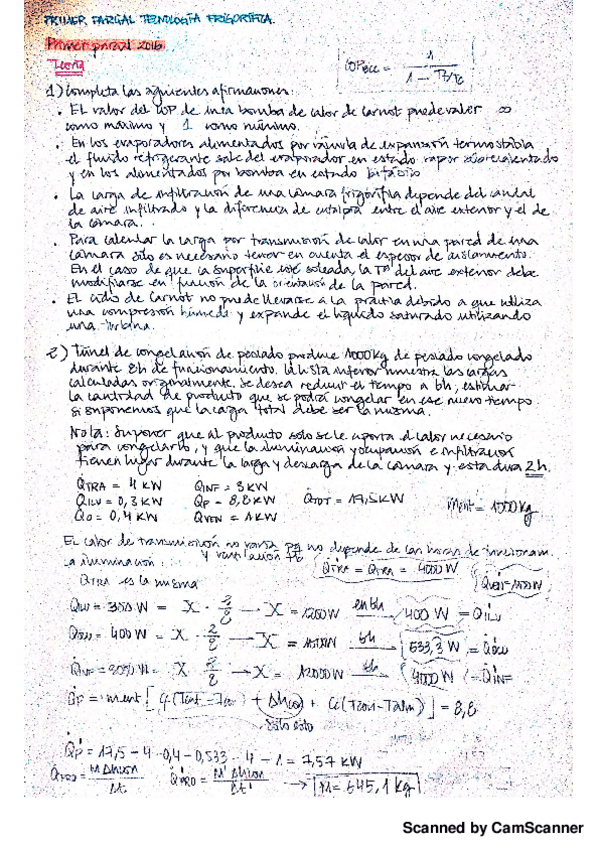 PRIMER PARCIAL TECNOLOGÍA FRIGORÍFICA.
Primer parcial 2016
Teoría
COP BCC = 1 / 1 - Tf/Tc
1) Completa las siguientes afirmaciones:
. El valor del COP de una bomba de calor de Carnot puede valer ∞
como máximo y 1 como mínimo.
. En los evaporadores alimentados por válvula de expansión termostática
el fluido refrigerante sale del evaporador en estado vapor sobrecalentado
y en los alimentados por bomba en estado bifásico
. La carga de infiltración de una cámara frigorífica depende del caudal
de aire infiltrado y la diferencia de entalpía entre el aire exterior y el de
la cámara.
. Para calcular la carga por transmisión de calor en una pared de una
cámara sólo es necesario tener en cuenta el espesor de aislamiento.
En el caso de que la superficie esté soleada, la Tª del aire exterior debe
modificarse en función de la orientación de la pared.
. El ciclo de Carnot no puede llevarse a la práctica debido a que utiliza
una compresión húmeda y expande el líquido saturado utilizando
una turbina.
2) Túnel de congelación de pescado produce 1000 kg de pescado congelado
durante 8h de funcionamiento. La lista inferior muestra las cargas
calculadas originalmente. Se desea reducir el tiempo a 6h, estimar
la cantidad de producto que se podrá congelar en ese nuevo tiempo
si suponemos que la carga total debe ser la misma.
Nota: Suponer que al producto solo se le aporta el calor necesario
para congelarlo, y que la iluminación y ocupación e infiltración
tienen lugar durante la carga y descarga de la cámara y esta dura 2h.
QTRA = 4 KW QINF = 3KW
QILU = 0,3 KW QP = 8,8 KW QTOT = 17,5 KW ment = 1000 kg
QO = 0,4 KW QVEN = 1KW
El calor de transmisión no varía pq no depende de las horas de funcionam.
y ventilación tb
La iluminación: QTRA = QTRA = 4000W QVEN = 1000W
QTRA es la misma
QILU = 300W = X · 2/8 → X = 1200W en 6h 400 W = QILU
QOCU = 400W = X · 2/8 → X = 1600W 6h 533,3 W = QOCU
QINF = 3000W = X · 2/8 → X = 12000W 6h 4000W = QINF
QP = ment [ Cf(Tent-Tcon) + Δhcon + Cc(Tcon-Talm) ] = 8,8
sólo esto
QP' = 17,5 - 4 - 0,4 - 0,533 - 4 - 1 = 7,57 KW
QPRO = M Δhcon / Δt Q'PRO = M' Δhcon / Δt' → M = 645,1 kg
Scanned by CamScanner